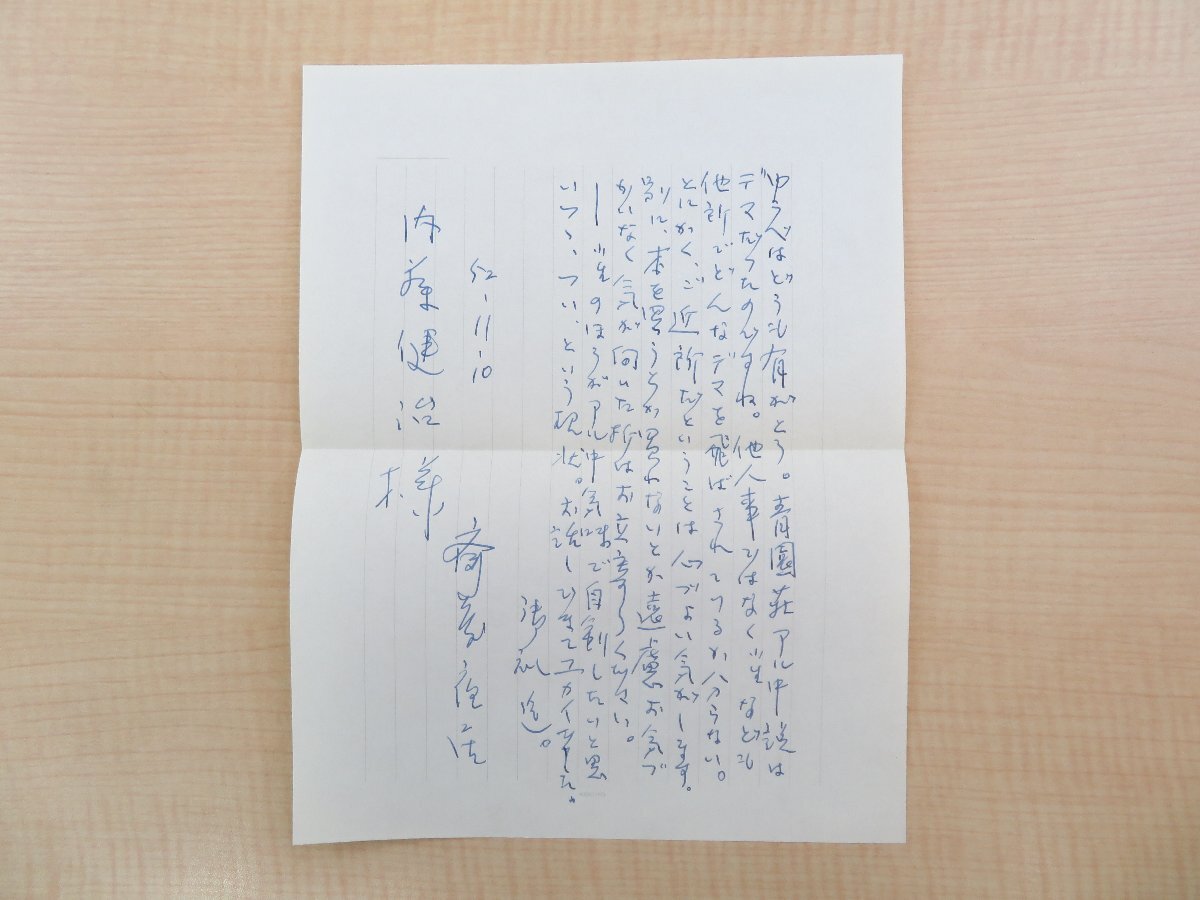 ゆうべはどうも有がとう。青園荘アル中説は
デマだったのですね。他人事ではなく小生なども
他所でどんなデマを飛ばされているか分らない。
とにかく、ご近所だということは心づよい気がします。
別に、本を買うとか買わないとか遠慮お気づ
かいなく気が向いた折はお立寄りください。
― 小生のほうがアル中気味で自制したいと思
いつゝ、つい、という現状。お話しできてユカイでした。
御礼迄。
52-11-10
斎藤
内藤健治様